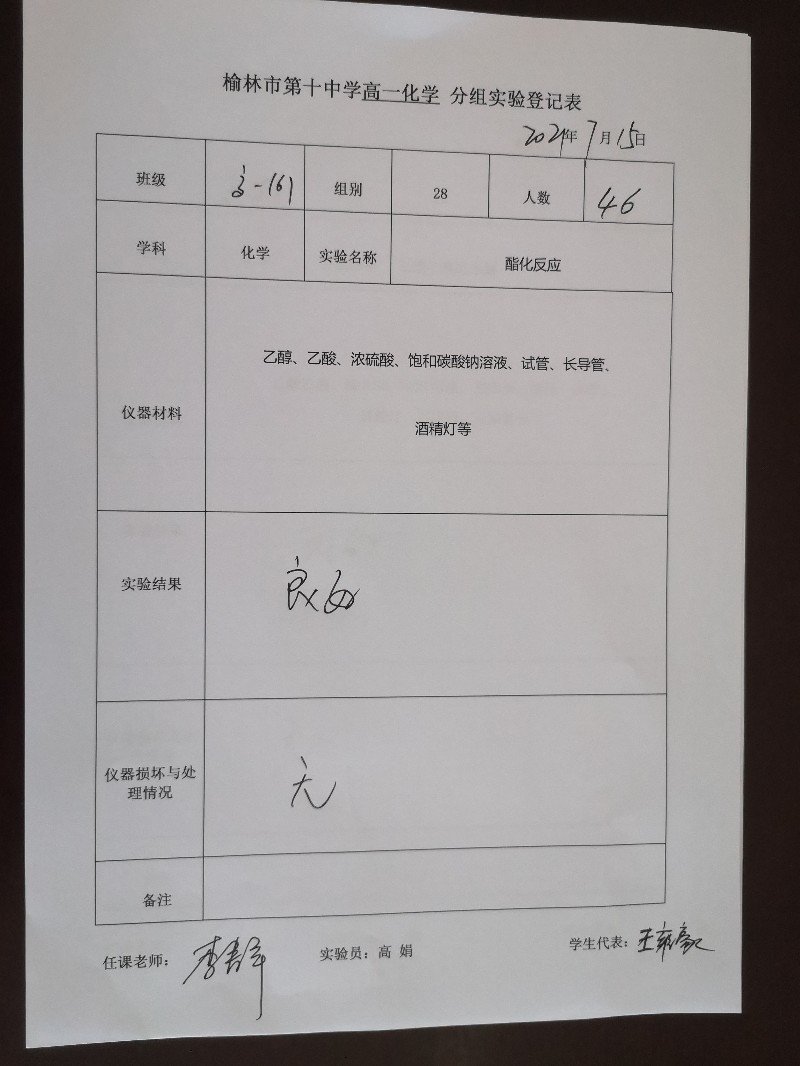 榆林市第十中学高一化学 分组实验登记表
2021年7月15日
班级 高一(6) 组别 28 人数 46
学科 化学 实验名称 酯化反应
仪器材料 乙醇、乙酸、浓硫酸、饱和碳酸钠溶液、试管、长导管、
酒精灯等
实验结果 良好
仪器损坏与处
理情况 无
备注
任课老师： 实验员：高 娟 学生代表：